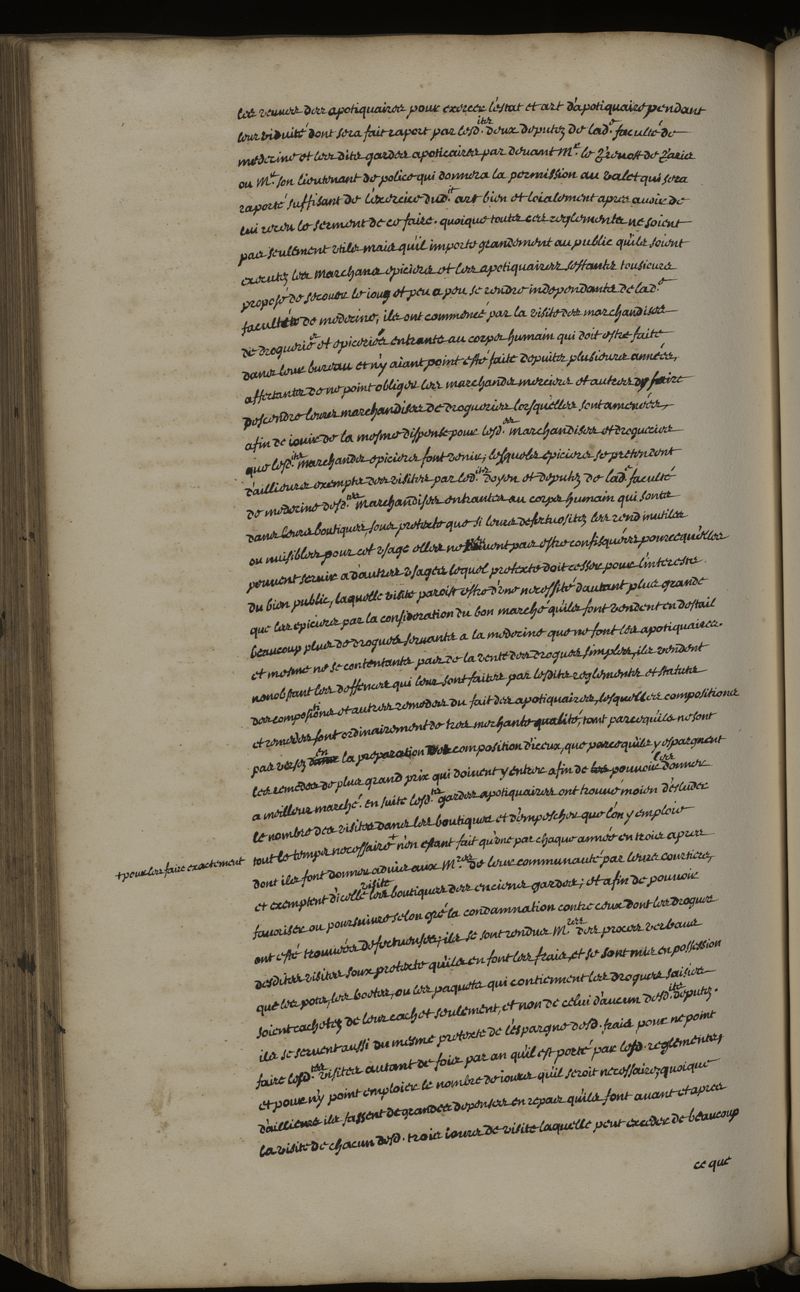 les veuves des apotiquaires pour exercer l'estat et art d'apotiquaire pendant
leur viduité dont sera fait raport par lesd.ites deux deputez de lad.e faculté de
medecine et les dits gardes apoticaires par devant M.r le Prevost de Paris
ou M.r son lieutenant de police qui donnera la permission au valet qui sera
raporté suffisant de l'exercice dud.it art bien et loialement apres avoir de
lui receu le serment de ce faire. quoique toutes ces reglements ne soient
pas seulement utiles mais qu'il importe grandement au public qu'ils soient
executez les marchans epiciers et les apotiquaires s'estants tousiours
proposé de secouer le ioug et peu a peu se rendre independants de lad.e
faculté de medecine, ils ont commencé par la visite des marchandises
de droguerie et epicerie entrants au corps humain qui doit estre faite
dans leur bureau et n'y aiant point esté faite depuis plusieurs années,
affectants de ne point obliger les marchands merciers et autres d'y faire
descendre leurs marchandises de drogueries lorsqu'elles sont amenées,
afin de iouir de la mesme dispense pour lesd.es marchandises et drogueries
que lesd.its marchands epiciers font venir; lesquels epiciers se pretendent
d'ailleurs exempts des visites par lesd.its doyen et deputez de lad.e faculté
de medecine desd.ites marchandises entrantes au corps humain qui sont
dans leurs boutiques sous pretexte que si leurs defectuositez les rend inutiles
ou nuisibles pour cet usage elles ne peuvent pas estre confisquées pource qu'elles
peuvent servir a d'autres usages lequel pretexte doit cesser pour l'interest
du bien public, laquelle visite paroist estre d'une necessité d'autant plus grande
que les epiciers par la consideration du bon marché qu'ils font vendent en destail
beaucoup plus de drogues servants a la medecine que ne font les apotiquaires.
et mesme ne se contentants pas de la vente des drogues simples, ils vendent
nonobstant les deffences qui leur sont faites par lesdits reglements et statuts
des compositions et autres remedes du fait des apotiquaires, lesquelles compositions
et remedes sont ordinairement de tres meschante qualité, tant parce qu'ils ne sont
pas versez en la preparation et composition d'iceux, que parce qu'ils y espargnent
les remedes de plus grand prix qui doivent y entrer afin de pouvoir les donner
a meilleur marché. en suite lesd.its gardes apotiquaires ont trouvé moien d'eluder
le nombre des visites dans les boutiques et d'empescher que l'on y emploie
tout le temps necessaire + n'en estant fait qu'une par chaque année en trois apres
+ pour les faire exactement
dont ils font donner advis aux M.res de leur communauté par leurs courtiers,
et exemptent d'icelle visite les boutiques des enciens gardes; et afin de pouvoir
favoriser ou poursuivre selon gré la condamnation contre ceux dont les drogues
ont esté trouvées defectueuses, ils se sont rendus M.res des proces verbaux
desdites visites soux pretexte qu'ils en font les frais, et se sont mis en possession
que les pots, les boetes, ou les paquets qui contiennent les drogues saisies
soient cachetez de leur cachet seulement, et non de celui d'aucun desd.its deputez.
ils se servent aussi du mesme pretexte de l'espargne desd. frais pour ne point
faire lesd.ites visites autant de fois par an qu'il est porté par lesd. reglements,
et pour n'y point emploier le nombre de iours qu'il seroit necessaire, quoique
d'ailleurs ils fassent de grandes depenses en repas qu'ils font avant et apres
la visite de chacun desd. trois iours de visite laquelle peut exceder de beaucoup
ce que